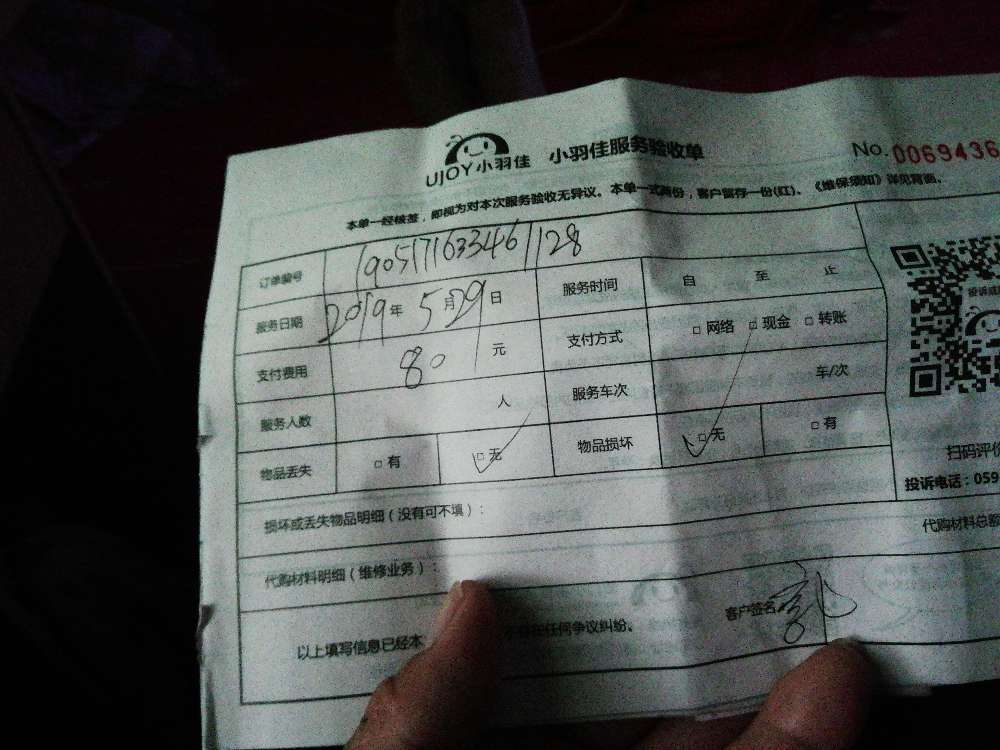 UJOY小羽佳 小羽佳服务验收单 No.0069436
本单一经核签，即视为对本次服务验收无异议。本单一式两份，客户留存一份(红)。《维保须知》详见背面。
订单编号 1905171633461128
服务日期 2019年5月29日 服务时间 自 至 止
支付费用 80 元 支付方式 □网络 □现金 □转账
服务人数 人 服务车次 车/次
物品丢失 □有 □无 物品损坏 □无 □有
投诉或
扫码评价
投诉电话：059
损坏或丢失物品明细（没有可不填）：
代购材料明细（维修业务）： 代购材料总额
以上填写信息已经本 任何争议纠纷。 客户签名